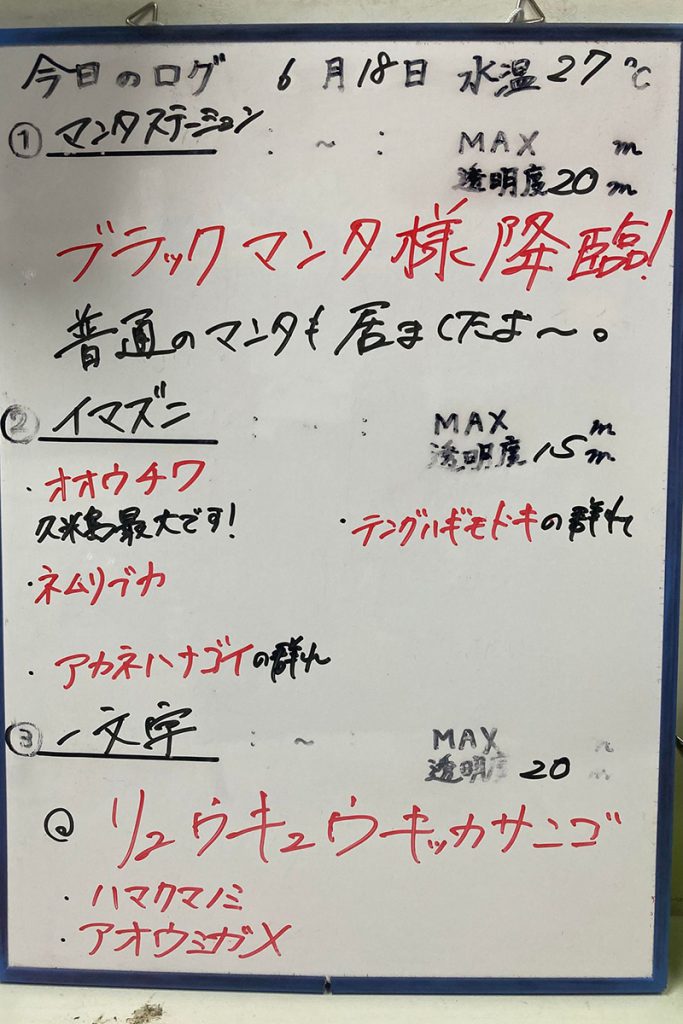 今日のログ 6月18日 水温27℃
① マンタステーション : ~ : MAX m
透明度20m
ブラックマンタ様降臨!
普通のマンタも居ましたよ~。
② イマズニ : : MAX m
透明度15m
・オオウチワ
久米島最大です!
・テングハギモドキの群れ
・ネムリブカ
・アカネハナゴイの群れ
③ 一文字 : ~ : MAX m
透明度20m
@ リュウキュウキッカサンゴ
・ハマクマノミ
・アオウミガメ